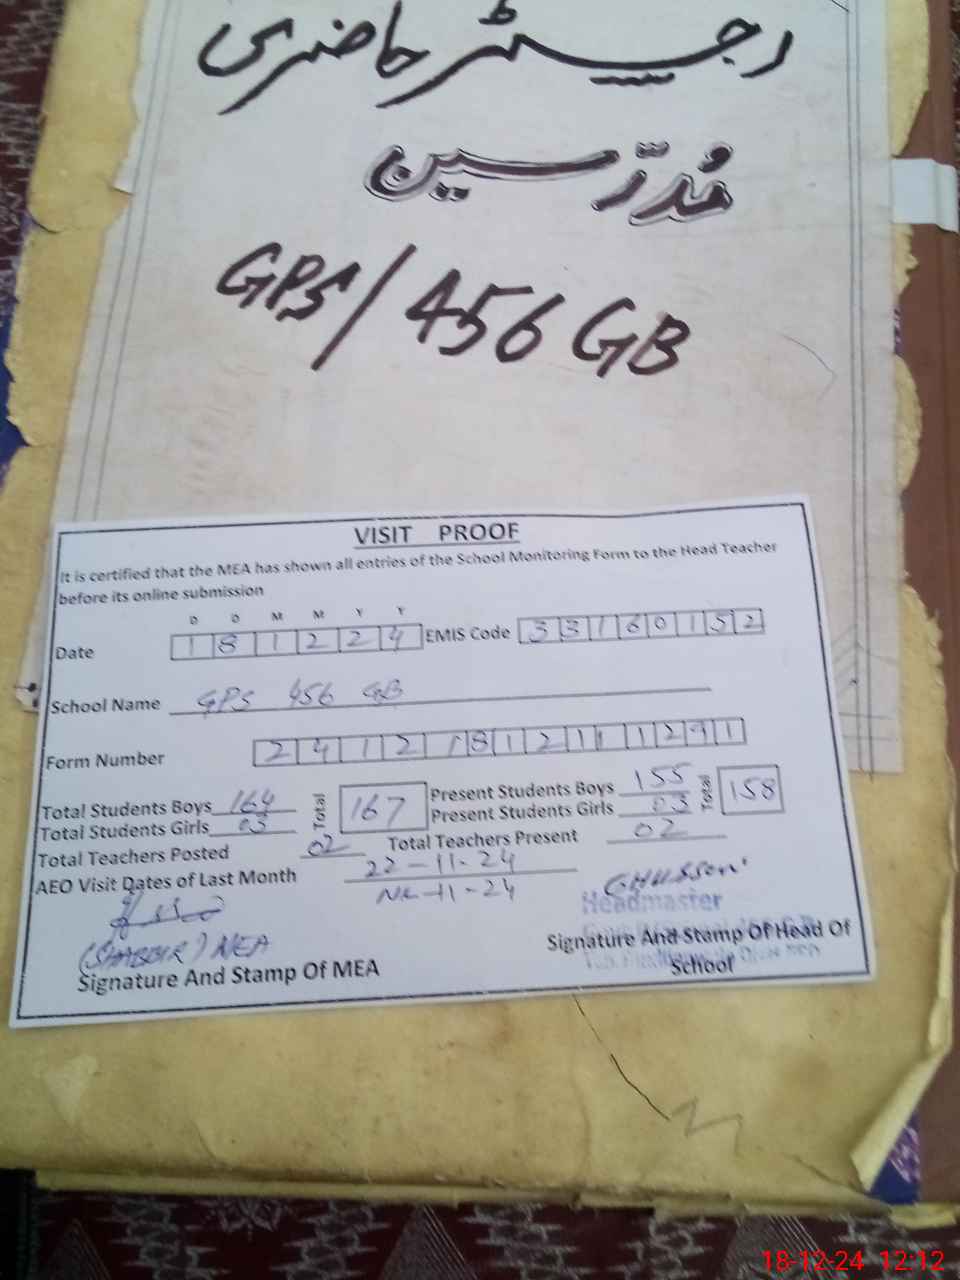 رجسٹر حاضری
مُدرّسین
GPS/456 GB
VISIT PROOF
It is certified that the MEA has shown all entries of the School Monitoring Form to the Head Teacher
before its online submission
D D M M Y Y
Date 181224 EMIS Code 33160152
School Name GPS 456 GB
Form Number 2412181211291
Total Students Boys 164 Total 167 Present Students Boys 155 Total 158
Total Students Girls 03 Present Students Girls 03
Total Teachers Posted 02 Total Teachers Present 02
AEO Visit Dates of Last Month 22-11-24
-11-24
Headmaster
(SHABBIR) MEA
Signature And Stamp Of MEA
Signature And Stamp Of Head Of
School
18-12-24 12:12